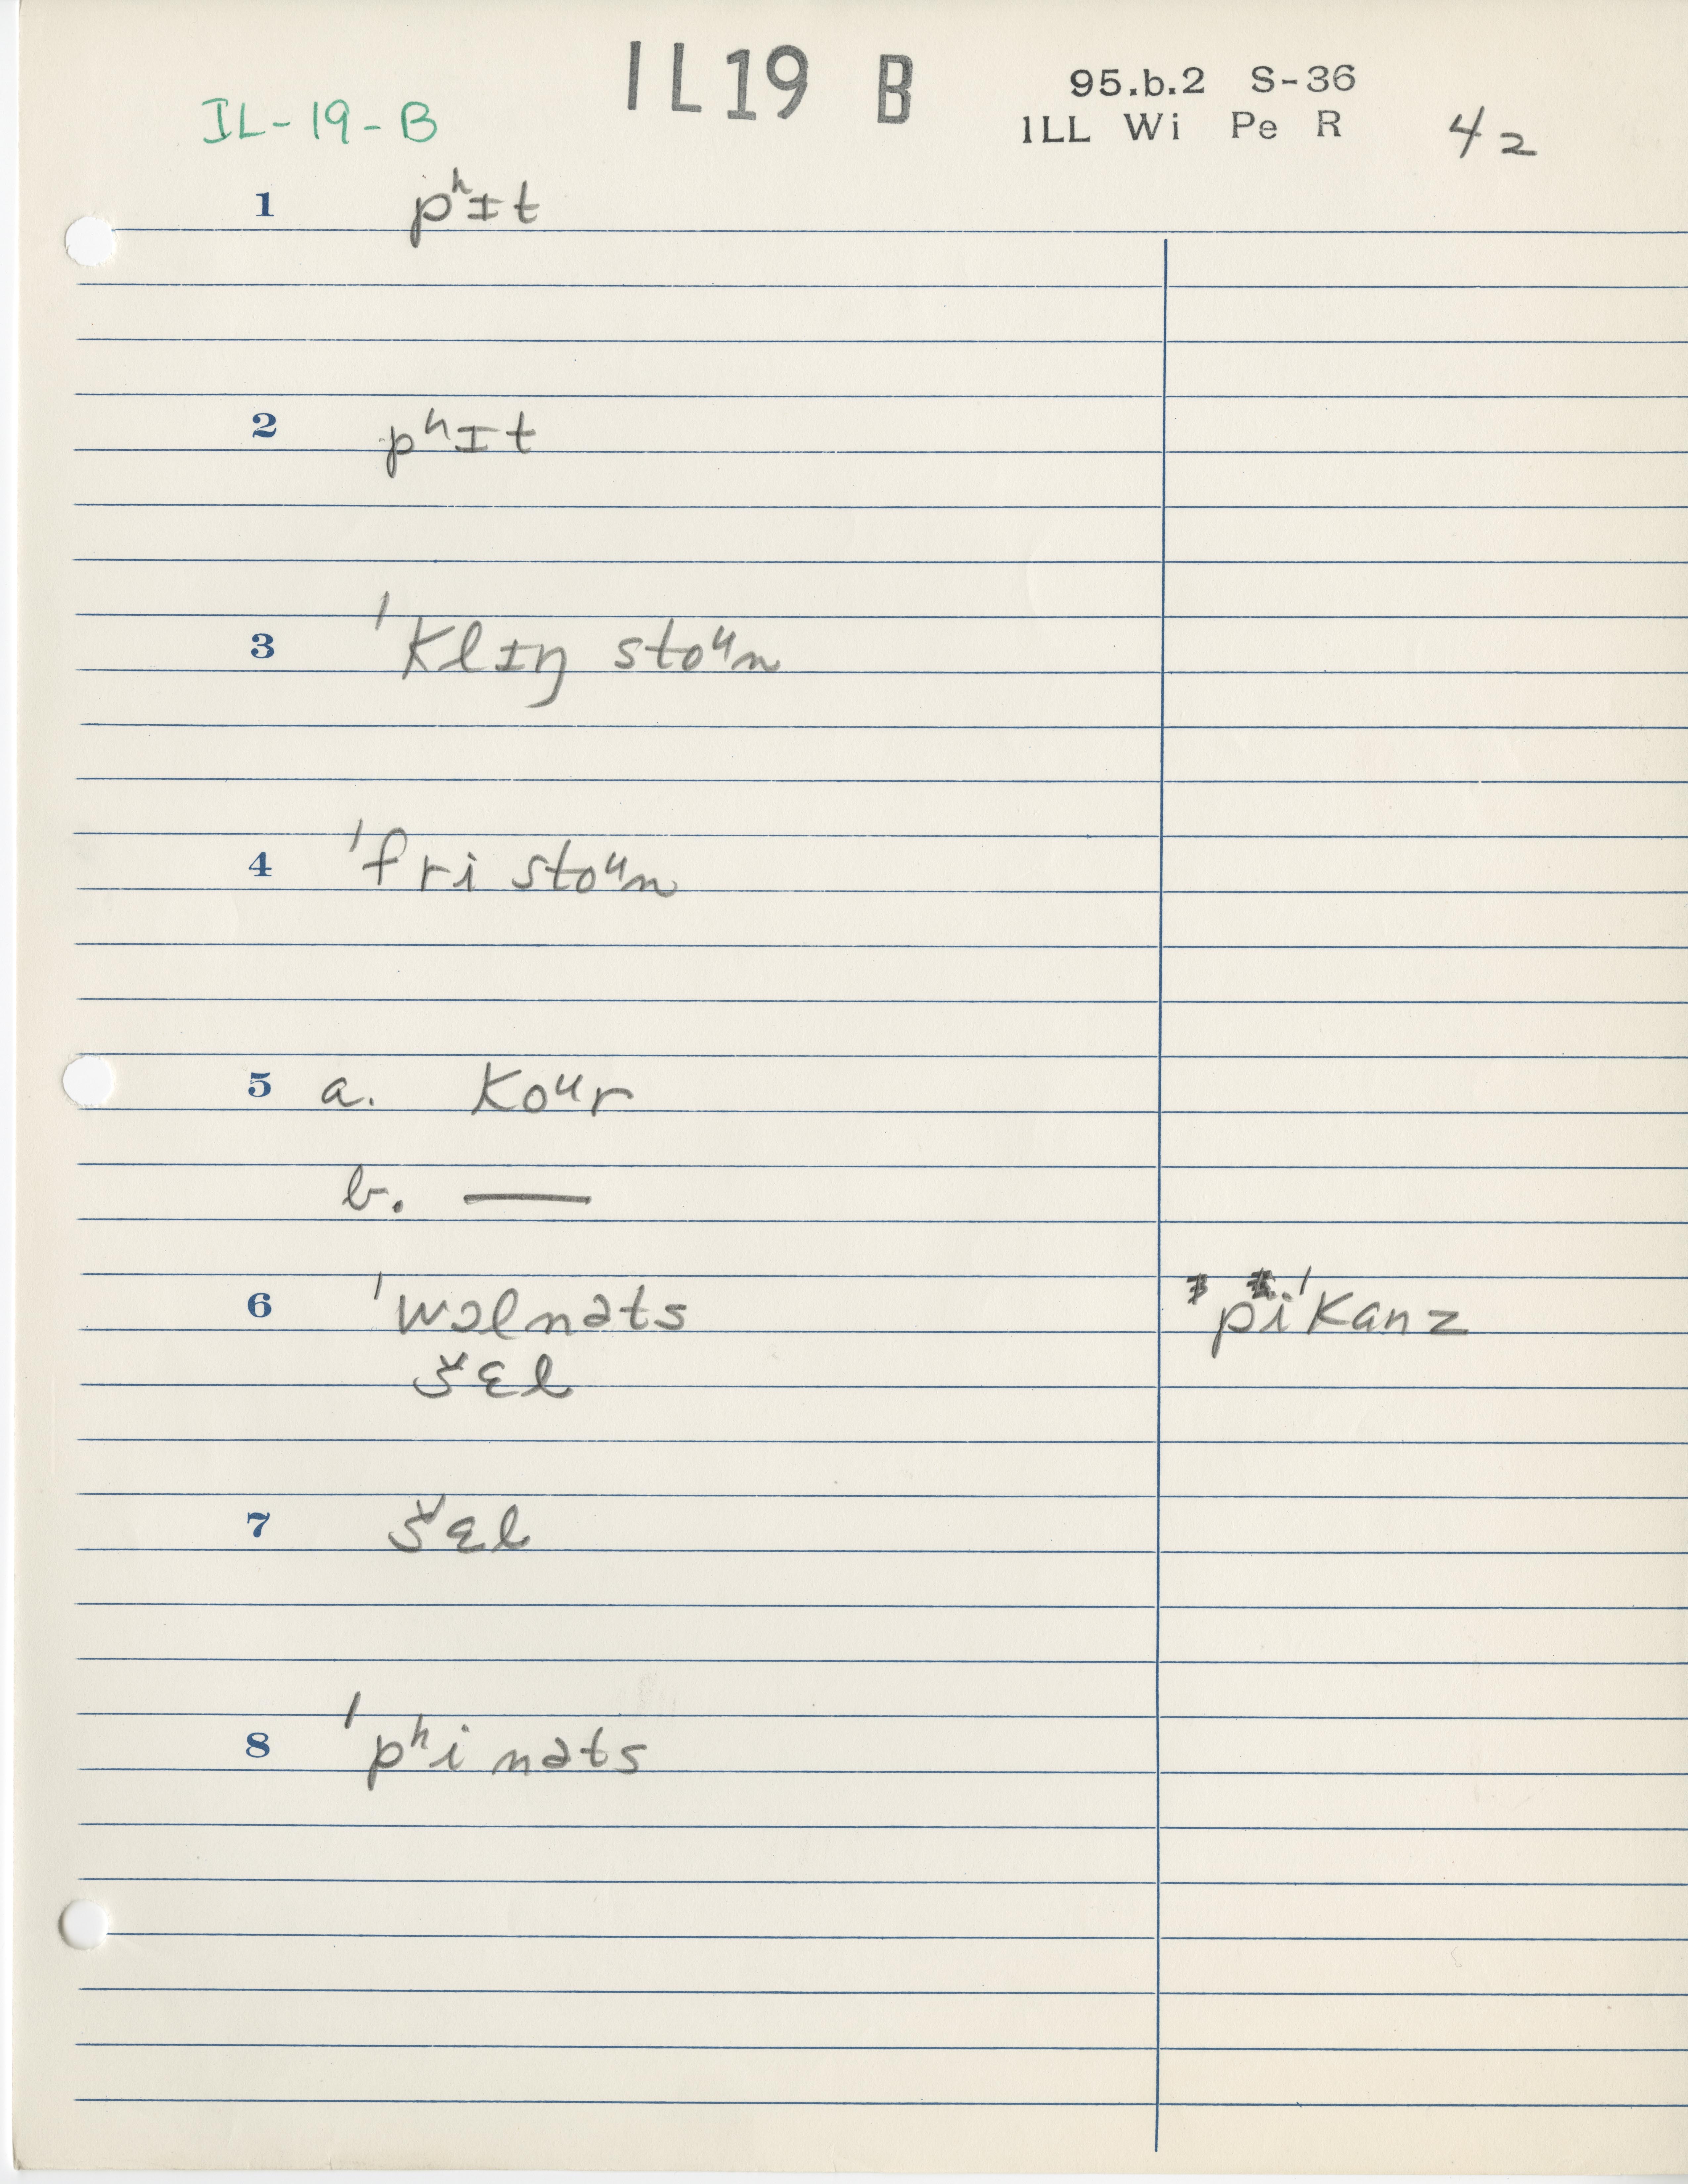 IL19 B
95.b.2 S-36
IL-19-B
1LL Wi Pe R 42
1 pʰɪt
2 pʰɪt
3 ˈklɪŋ stoᵘn
4 ˈfri stoᵘn
5 a. koᵘr
b. —
6 ˈwɔlnəts piˈkanz
šɛl
7 šɛl
8 ˈpʰinəts